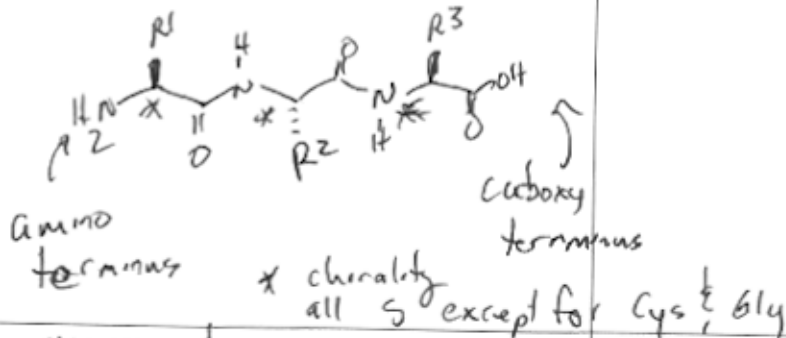 R1 H O R3
H2N * N * N * OH
O R2 H O
amino
terminus
carboxy
terminus
* chirality
all S except for Cys & Gly